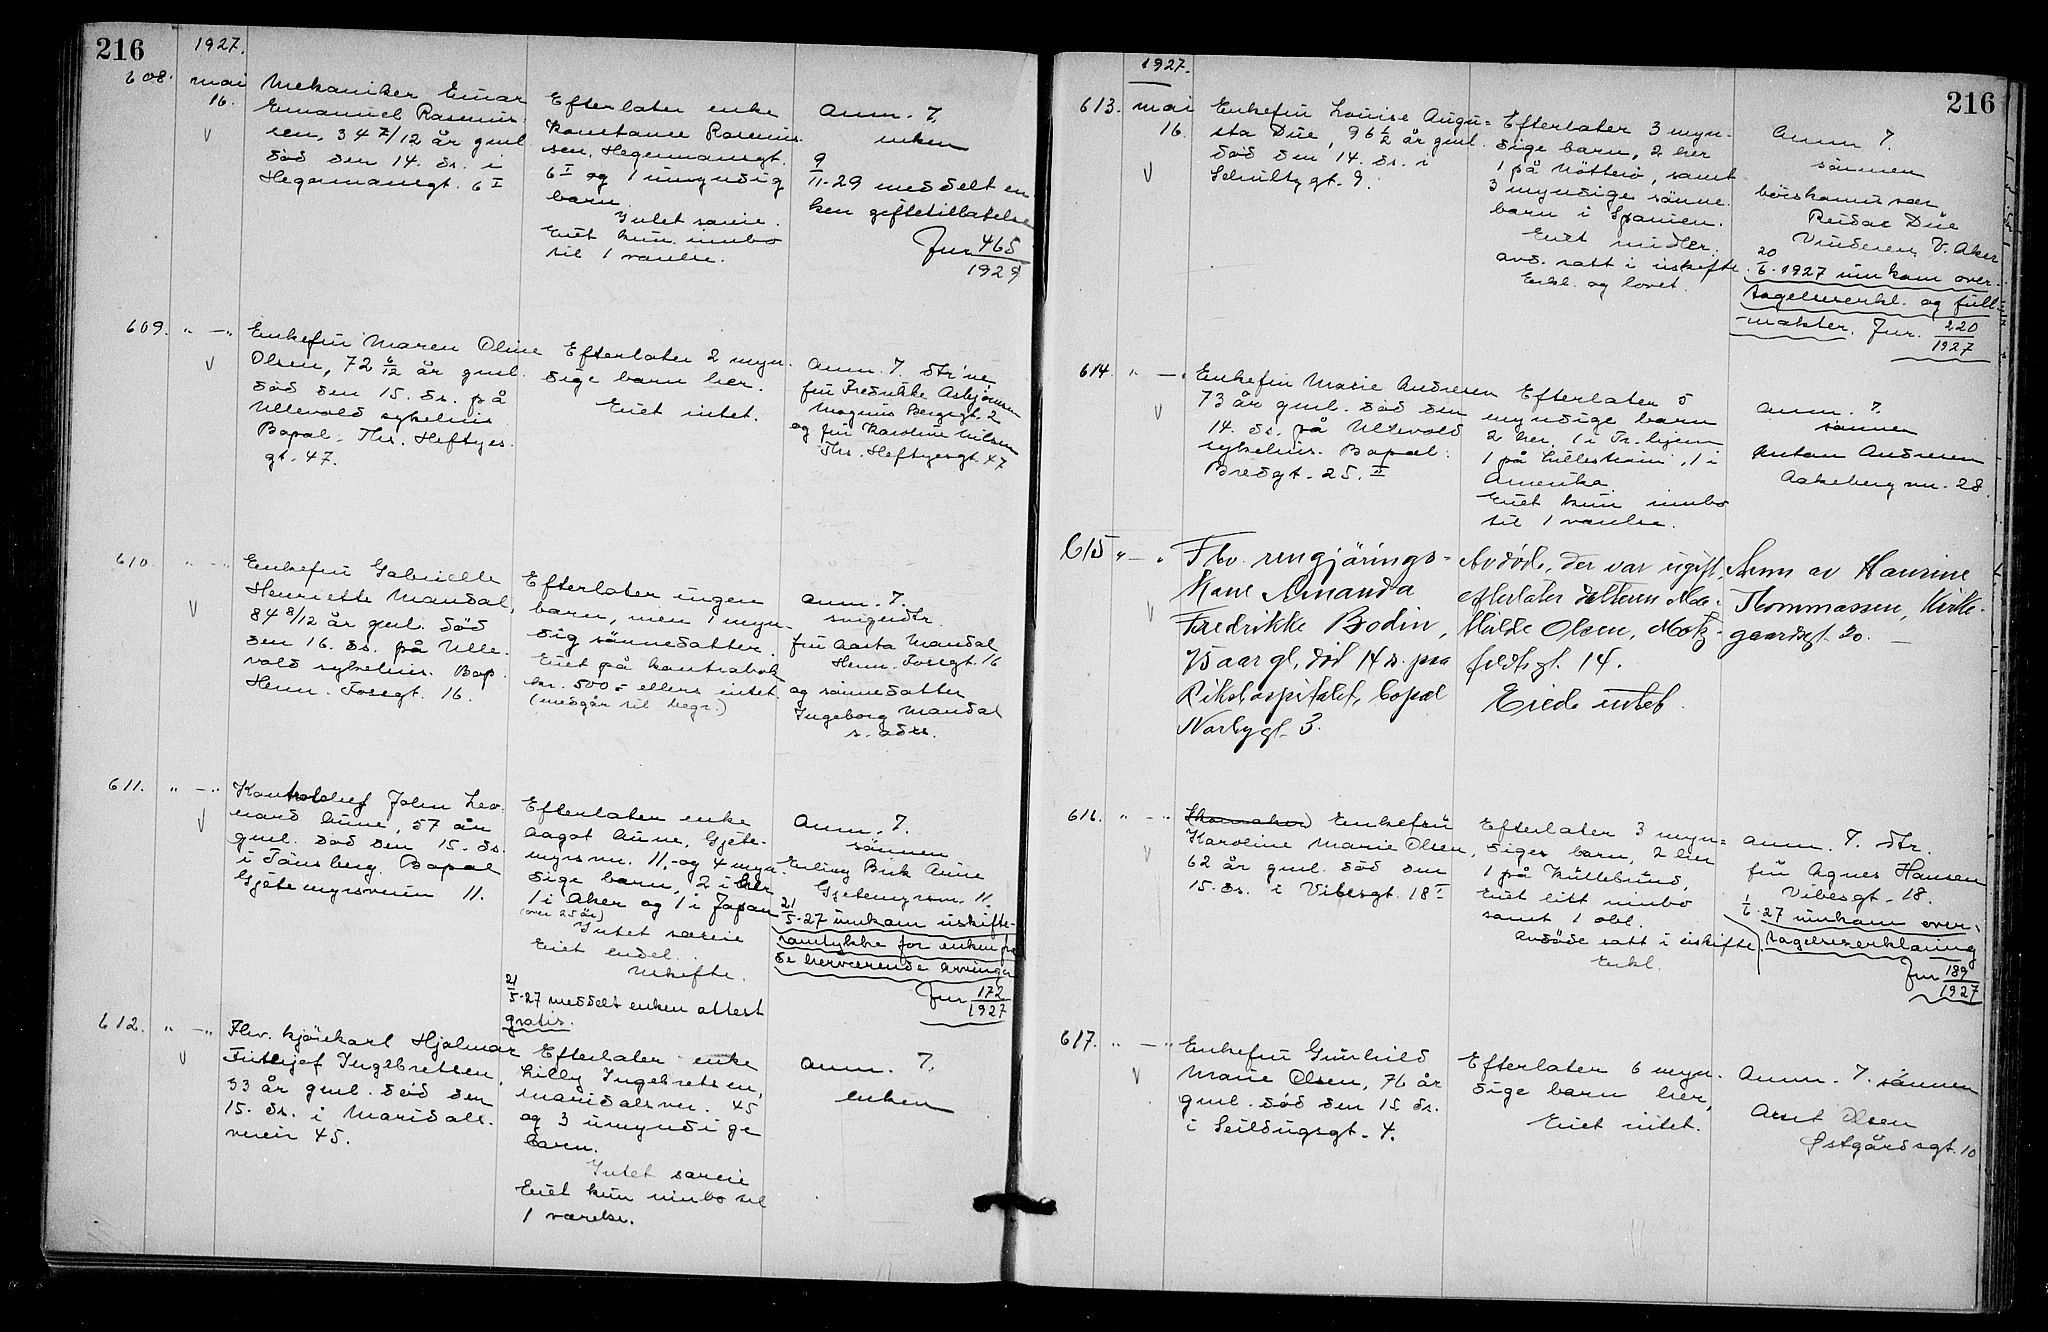 216
1927.
608. mai 16.
Mekaniker Einar
Emanuel Rasmus-
sen, 34 7/12 år gml.
død den 14. ds. i
Hegermansgt. 6 I
Efterlater enke
Konstance Rasmus-
sen, Hegermansgt.
6 I og 1 umyndig
barn.
Intet særeie.
Eiet kun innbo
til 1 værelse.
Anm. 7.
enken
9/11-29 meddelt en
ken giftetillatelse
Jnr 465/1929
609. " — "
Enkefru Maren Oline
Olsen, 72 6/12 år gml.
død den 15. ds. på
Ullevold sykehus
Bopæl: Ths. Heftyes
gt. 47.
Efterlater 2 myn-
dige barn her.
Eiet intet.
Anm. 7. dtr'ne
fru Fredrikke Asbjørnsen
Magnus Bergsgt. 2
og fru Karoline Nilsen
Ths. Heftyesgt. 47
610. " — "
Enkefru Gabrielle
Henriette Mandal,
84 8/12 år gml. død
den 16. ds. på Ulle-
vold sykehus. Bop.
Henr. Ibsegt. 16.
Efterlater ingen
barn, men 1 myn-
dig sønnedatter.
Eiet på kontrabok
kr. 500.- ellers intet
(medgår til begr.)
Anm. 7.
svigerdtr.
fru Aasta Mandal
Henr. Ibsegt. 16
og sønnedatter
Ingeborg Mandal
s. adrs.
611. " — "
Kontorchef John Leo-
nard Aune, 57 år
gml. død den 15. ds.
i Tønsberg. Bopæl
Gjetemyrsveien 11.
Efterlater enke
Aagot Aune, Gjete-
myrsvn. 11, og 4 myn-
dige barn, 2 i her
1 i Aker og 1 i Japan
(over 25 år)
Intet særeie
Eiet endel.
Uskifte.
21/5-27 meddelt enken attest
gratis.
Anm. 7.
sønnen
Erling Birk Aune
Gjetemyrsvn. 11.
21/5-27 innkom uskifte-
samtykke for enken fra
de herværende arvinger
Jnr 172/1927
612. " — "
Fhv. kjørekarl Hjalmar
Fritjof Ingebretsen,
33 år gml. død den
15. ds. i Maridals-
veien 45.
Efterlater enke
Lilly Ingebretsen,
Maridalsvn. 45
og 3 umyndige
barn.
Intet særeie
Eiet kun innbo til
1 værelse.
Anm. 7.
enken
216
1927.
613. mai 16.
Enkefru Louise Augu-
sta Due, 96 1/2 år gml.
død den 14. ds. i
Schultzgt. 9.
Efterlater 3 myn-
dige barn, 2 her
1 på Nøtterø, samt
3 myndige sønne-
barn i Spanien.
Eiet midler.
avd. satt i uskifte
Erkl. og lovet.
Anm 7.
sønnen
børskommissær
Reidar Due
Vinderen, V. Aker
20/6-1927 innkom over-
tagelseserkl. og full-
makter. Jnr. 220/1927
614. " — "
Enkefru Marie Andresen
73 år gml. død den
14. ds. på Ullevold
sykehus. Bopæl:
Bredgt. 25. II
Efterlater 5
myndige barn
2 her, 1 i Tr.hjem
1 på Lillestrøm, 1 i
Amerika.
Eiet kun innbo
til 1 værelse.
Anm. 7.
sønnen
Anton Andresen
Aakeberg vn. 28.
615 " — "
Fhv. rengjørings-
kone Amanda
Fredrikke Bodin,
75 aar gl, død 14 ds. paa
Rikshospitalet, bopæl
Norbygt. 3.
Avdøde, der var ugift,
efterlater datteren Mat-
hilde Olsen, Motz-
feldtsgt. 14.
Eiede intet.
Anm av Hansine
Thommassen, Kirke-
gaardsgt. 20. —
616. " — "
Enkefru
Karoline Marie Olsen,
62 år gml. død den
15. ds. i Vibesgt. 18 I
Efterlater 3 myn-
dige barn, 2 her
1 på Kullebund,
Eiet litt innbo
samt 1 obl.
Avdøde satt i uskifte.
Erkl.
Anm. 7. dtr.
fru Agnes Hansen
Vibesgt. 18.
1/6-27 innkom over-
tagelseserklæring
Jnr 189/1927
617. " — "
Enkefru Gunhild
Marie Olsen, 76 år
gml. død den 15 ds.
i Seildugsgt. 4.
Efterlater 6 myn-
dige barn her,
Eiet intet.
Anm. 7. sønnen
Arnt Olsen
Østgårdsgt. 10